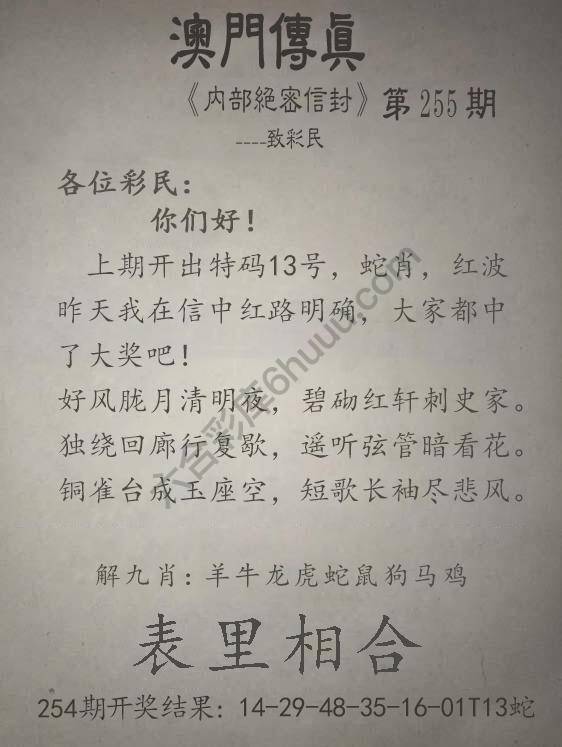 澳門傳眞
《内部絕密信封》第255期
----致彩民
各位彩民：
你们好！
上期开出特码13号，蛇肖，红波
昨天我在信中红路明确，大家都中
了大奖吧！
好风胧月清明夜，碧砌红轩刺史家。
独绕回廊行复歇，遥听弦管暗看花。
铜雀台成玉座空，短歌长袖尽悲风。
解九肖：羊牛龙虎蛇鼠狗马鸡
表里相合
254期开奖结果：14-29-48-35-16-01T13蛇
六合彩库6huuu.com